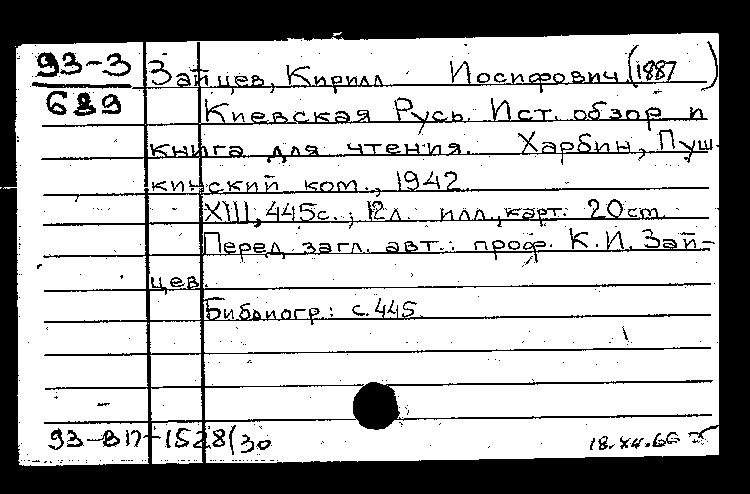 93-3 Зайцев, Кирилл Иосифович (1887 )
689 Киевская Русь. Ист. обзор и
книга для чтения. Харбин, Пуш-
кинский ком., 1942
XIII, 445с.; 12л. илл., карт. 20cm
Перед загл. авт.: проф. К.И. Зай-
цев.
Библиогр.: с. 445.
93-ВП-1528(30